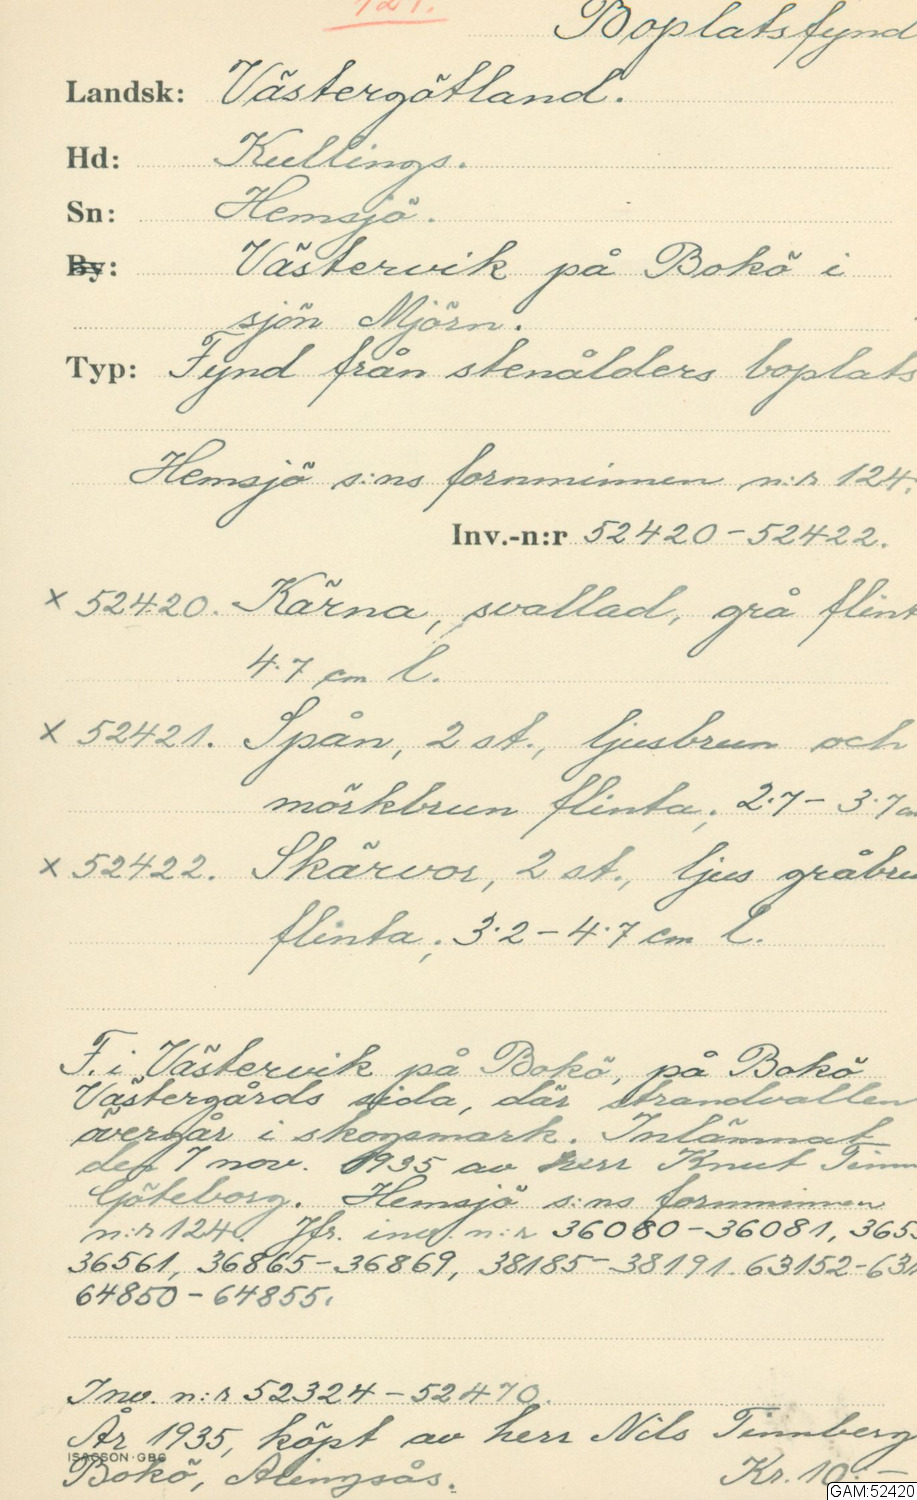 121.
Boplatsfynd
Landsk: Västergötland.
Hd: Kullings.
Sn: Hemsjö.
By: Västervik på Bokö i
sjön Mjörn.
Typ: Fynd från stenålders boplats
Hemsjö s:ns fornminnen n:r 124.
Inv.-n:r 52420-52422.
x 52420. Kärna, svallad, grå flint
4.7 cm l.
x 52421. Spån, 2 st., ljusbrun och
mörkbrun flinta; 2.7 - 3.7 cm
x 52422. Skärvor, 2 st., ljus gråbru
flinta; 3.2 - 4.7 cm l.
F. i Västervik på Bokö, på Bokö
Västergårds sida, där strandvallen
övergår i skogsmark. Inlämnat
den 7 nov. 1935 av herr Knut Tinn
Göteborg. Hemsjö s:ns fornminnen
n:r 124. Jfr. inv. n:r 36080-36081, 365
36561, 36865-36869, 38185-38191. 63152-631
64850-64855.
Inv. n:r 52324-52470.
År 1935, köpt av herr Nils Tinnberg
ISACSON·GBG
Bokö, Alingsås. Kr. 10:-
GAM:52420